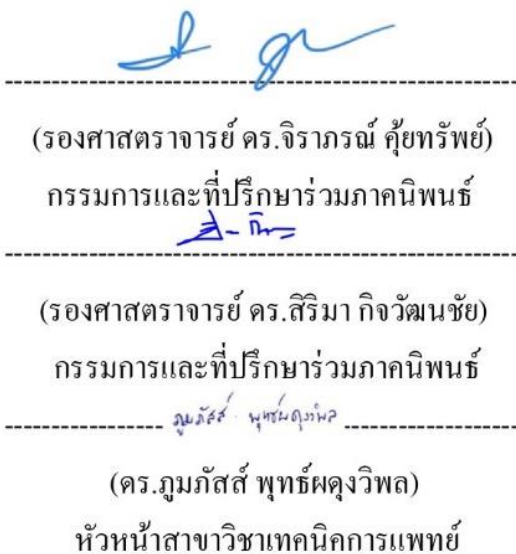 (รองศาสตราจารย์ ดร.จิราภรณ์ คุ้ยทรัพย์)
กรรมการและที่ปรึกษาร่วมภาคนิพนธ์
(รองศาสตราจารย์ ดร.สิริมา กิจวัฒนชัย)
กรรมการและที่ปรึกษาร่วมภาคนิพนธ์
ภูมภัสส์ พุทธ์ผดุงวิพล
(ดร.ภูมภัสส์ พุทธ์ผดุงวิพล)
หัวหน้าสาขาวิชาเทคนิคการแพทย์